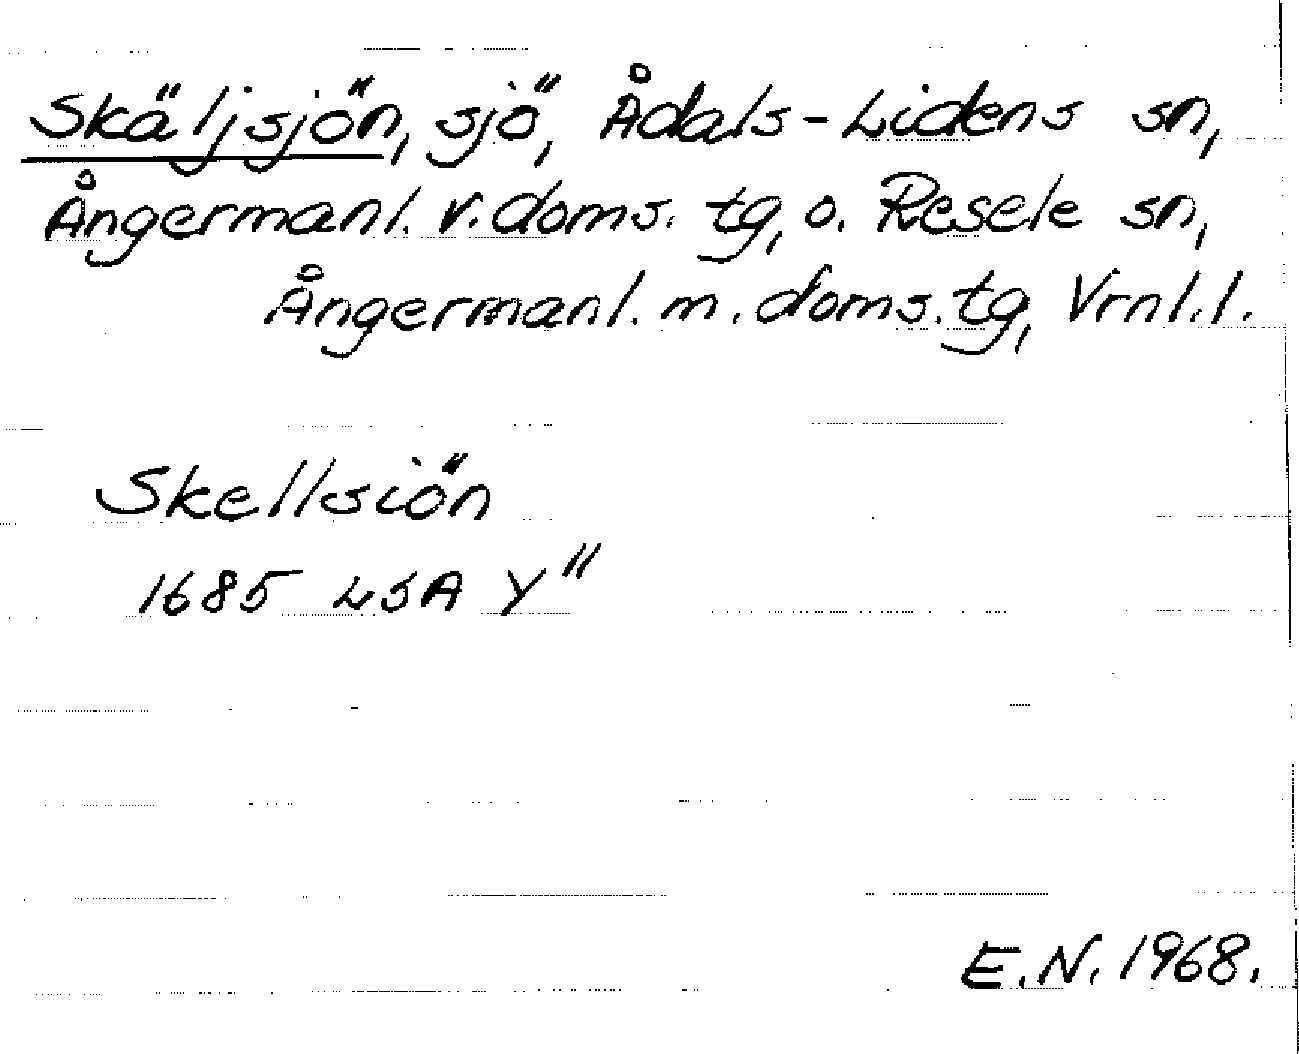 Skäljsjön, sjö, Ådals-Lidens sn,
Ångermanl. v. doms. tg, o. Resele sn,
Ångermanl. m. doms. tg, Vrnl. l.
Skellsiön
1685 LSA Y"
E.N. 1968.